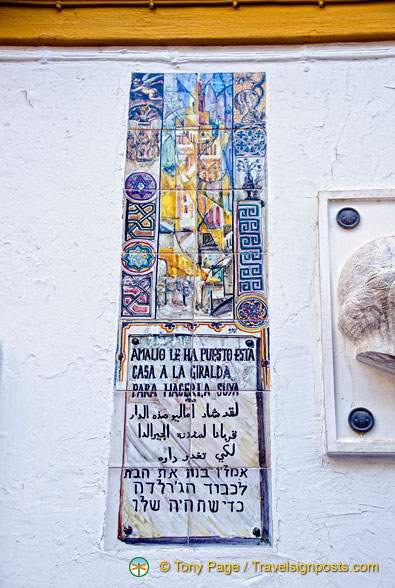 AMALIO LE HA PUESTO ESTA
CASA A LA GIRALDA
PARA HACERLA SUYA
لقد شاد أماليو هذه الدار
قربانا لمئذنة الجيرالدا
لكي تغدو داره
אמליו בנה את הבית
לכבוד הג'רלדה
כדי שתהיה שלו
© Tony Page / Travelsignposts.com